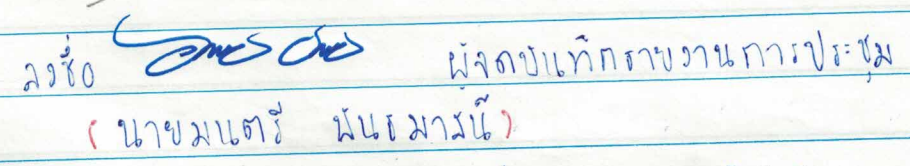 ลงชื่อ ผู้จดบันทึกรายงานการประชุม
(นายมนตรี พันธมาสน์)